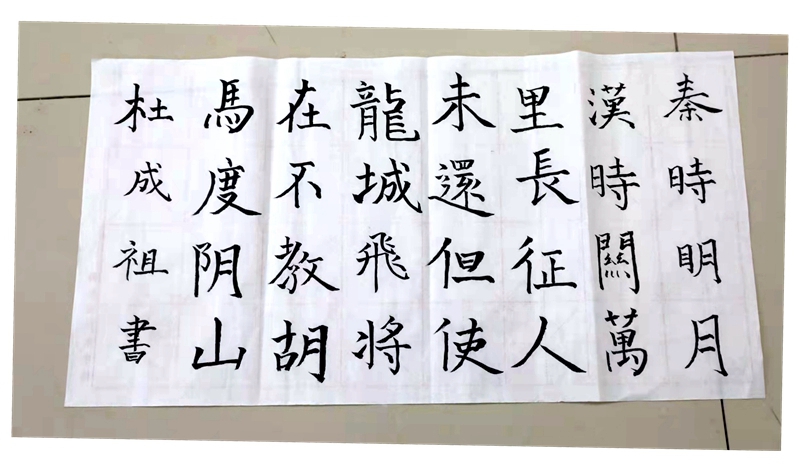 秦時明月
漢時關萬
里長征人
未還但使
龍城飛将
在不教胡
馬度阴山
杜成祖書